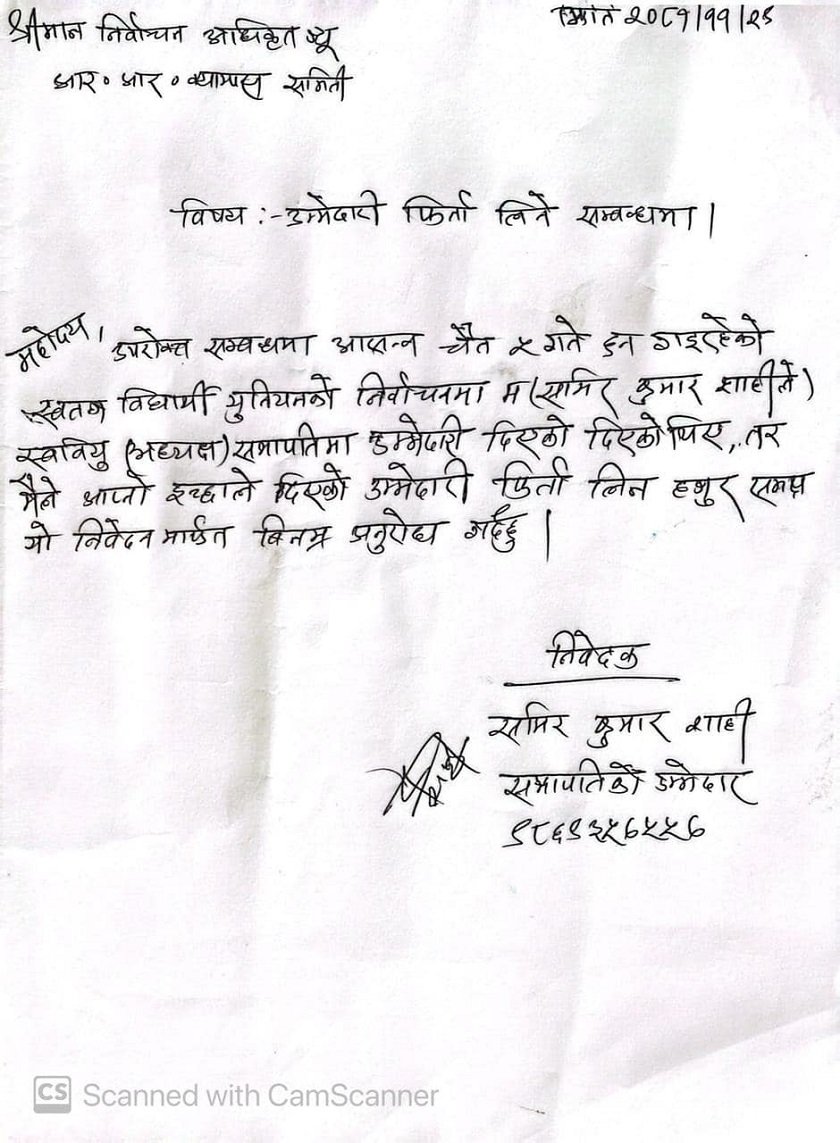 श्रीमान निर्वाचन अधिकृत ज्यू
मिति २०८१/११/२९
आर० आर० क्याम्पस समिती
विषय :- उम्मेदारी फिर्ता लिने सम्बन्धमा।
महोदय,
उपरोक्त सम्बन्धमा आसन्न चैत ५ गते हुन गइरहेको
स्वतन्त्र विद्यार्थी युनियनको निर्वाचनमा म (समिर कुमार शाहीले)
स्ववियु (अध्यक्ष) सभापतिमा उम्मेदारी दिएको दिएको थिए, तर
मैले आफ्नो इच्छाले दिएको उम्मेदारी फिर्ता लिन हजुर समक्ष
यो निवेदन मार्फत बिनम्र अनुरोध गर्दछु।
निवेदक
समिर कुमार शाही
सभापतिको उम्मेदार
९८६९३५७५५७
CS Scanned with CamScanner